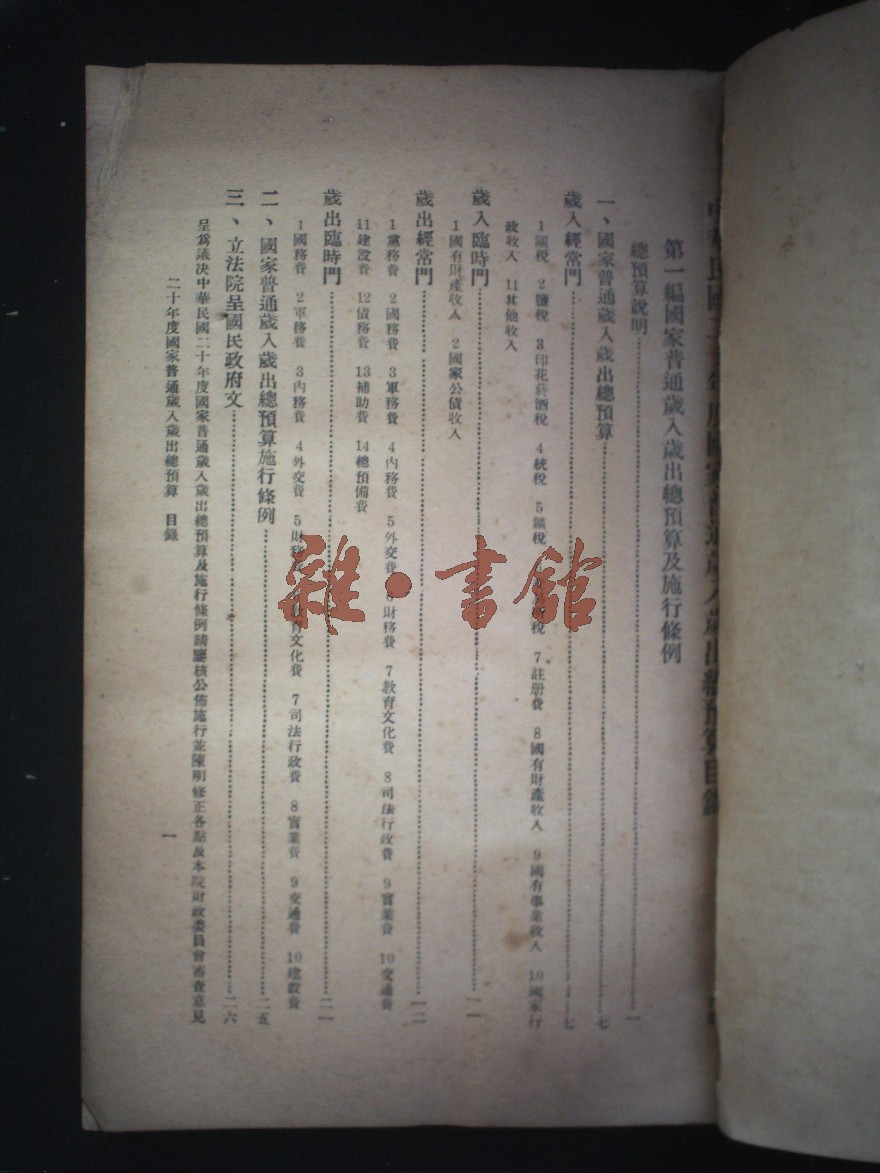 中華民國二十年度國家普通歲入歲出總預算目錄
第一編國家普通歲入歲出總預算及施行條例
總預算說明……一
一、國家普通歲入歲出總預算……七
歲入經常門……七
1關稅 2鹽稅 3印花菸酒稅 4統稅 5鑛稅 稅 7註册費 8國有財產收入 9國有事業收入 10國家行
政收入 11其他收入
歲入臨時門……一一
1國有財產收入 2國家公債收入
歲出經常門……一二
1黨務費 2國務費 3軍務費 4內務費 5外交費 6財務費 7教育文化費 8司法行政費 9實業費 10交通費
11建設費 12債務費 13補助費 14總預備費
歲出臨時門……二一
1國務費 2軍務費 3內務費 4外交費 5財務費 教育文化費 7司法行政費 8實業費 9交通費 10建設費
二、國家普通歲入歲出總預算施行條例……二五
三、立法院呈國民政府文……二六
呈爲議決中華民國二十年度國家普通歲入歲出總預算及施行條例請鑒核公佈施行並陳明修正各點及本院財政委員會審查意見
二十年度國家普通歲入歲出總預算 目錄
一
雜·書館